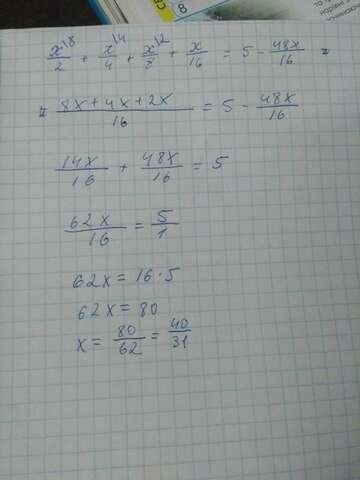 x^{18}/2 + x^{14}/4 + x^{12}/8 + x/16 = 5 - 48x/16 =
= 8x+4x+2x/16 = 5 - 48x/16
14x/16 + 48x/16 = 5
62x/16 = 5/1
62x = 16·5
62x = 80
x = 80/62 = 40/31